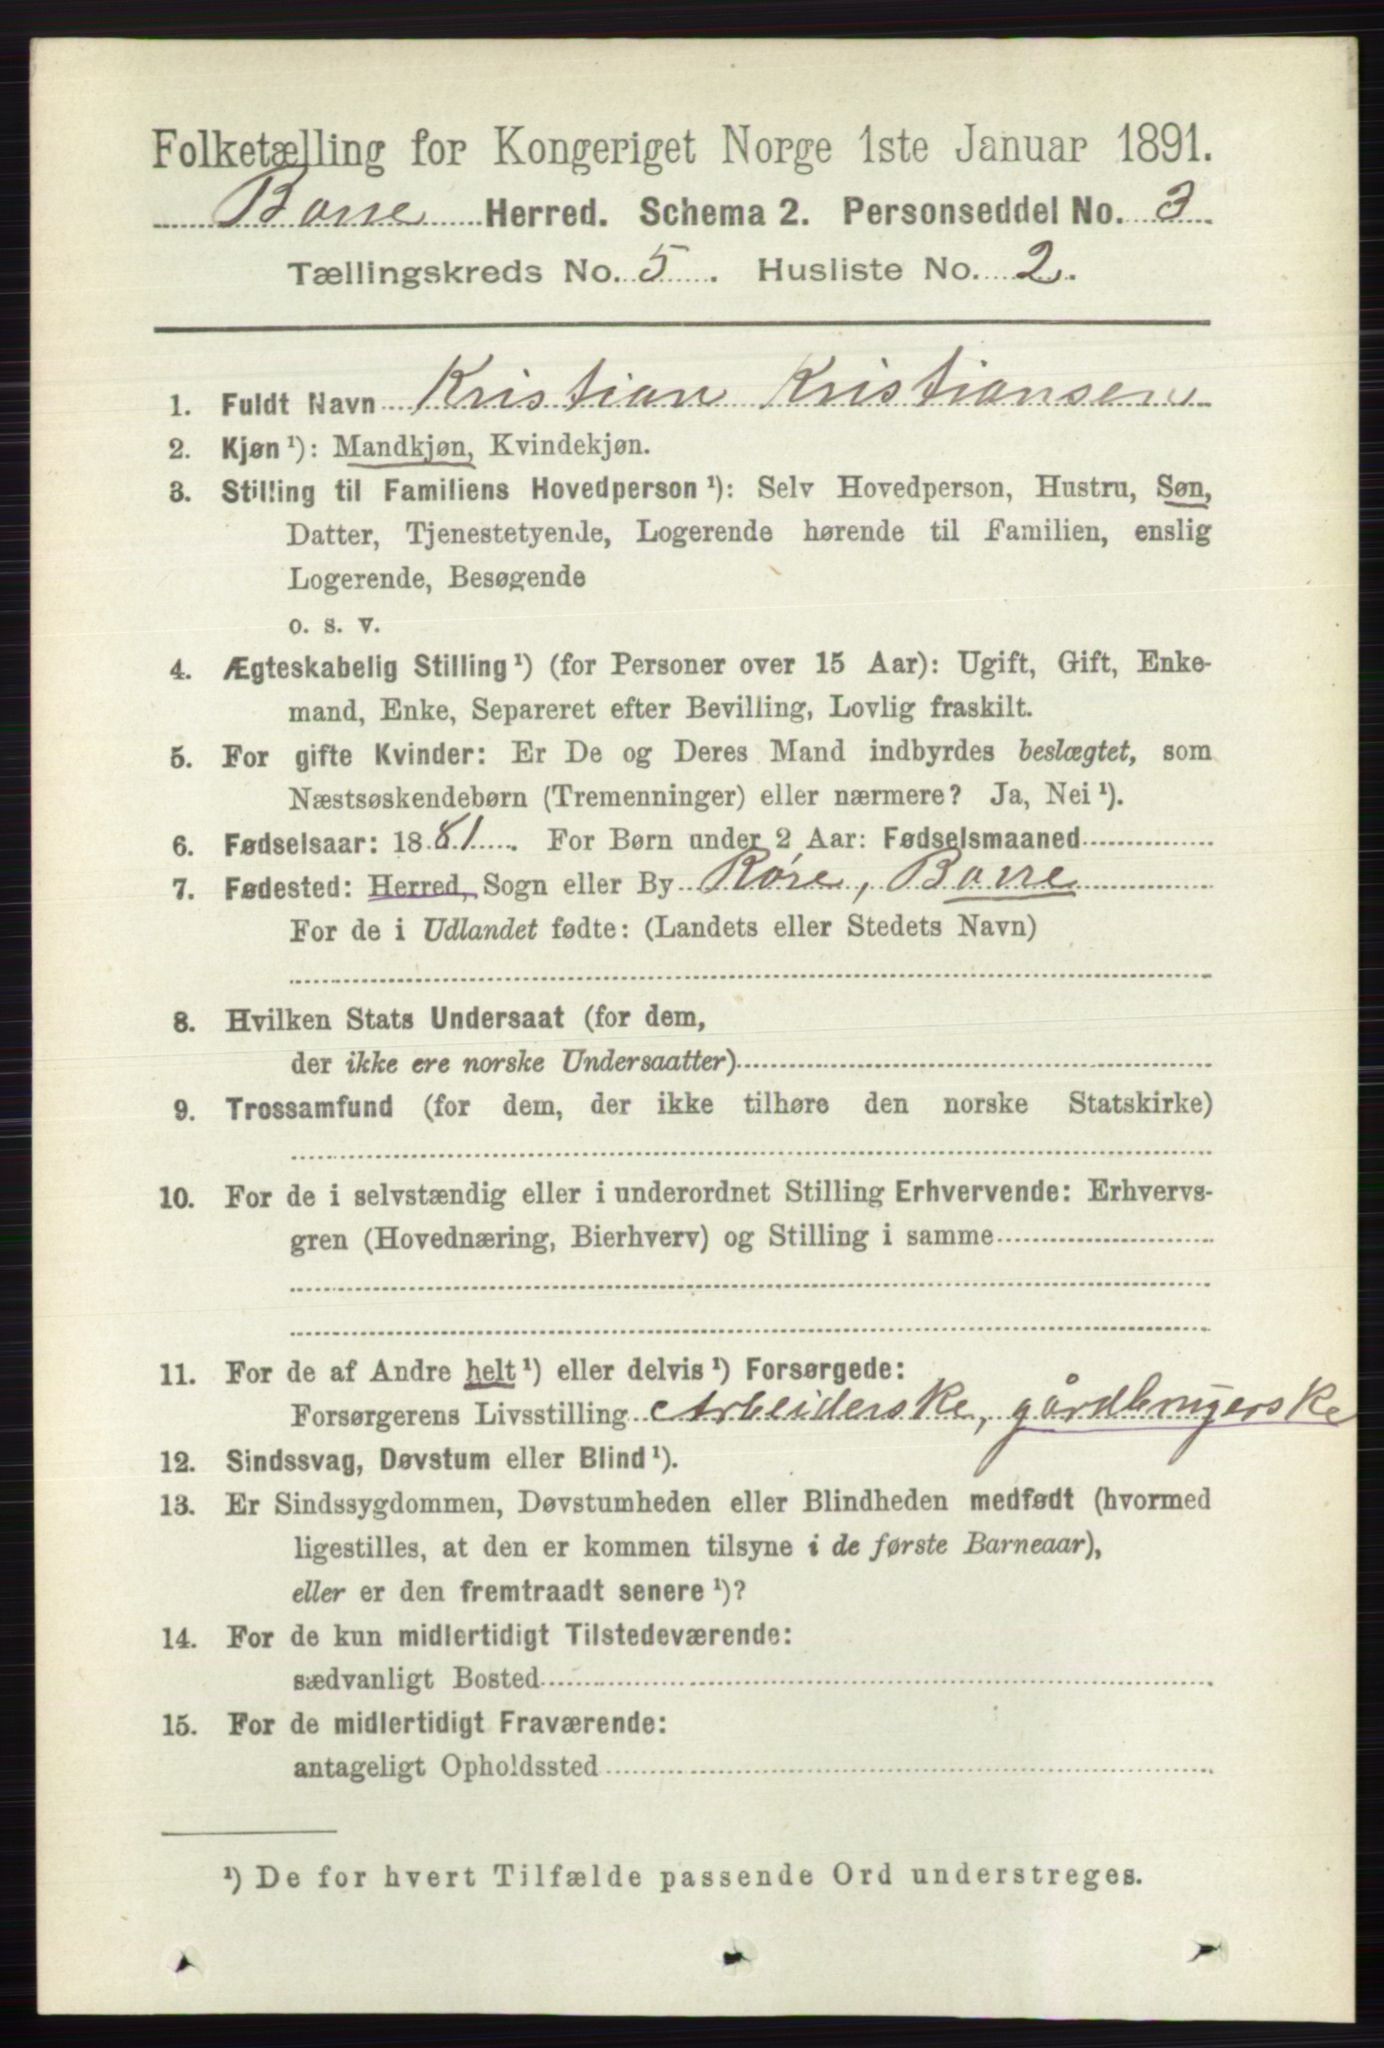 Folketælling for Kongeriget Norge 1ste Januar 1891.
Borre Herred. Schema 2. Personseddel No. 3
Tællingskreds No. 5. Husliste No. 2.
1. Fuldt Navn Kristian Kristiansen
2. Kjøn ¹): Mandkjøn, Kvindekjøn.
3. Stilling til Familiens Hovedperson ¹): Selv Hovedperson, Hustru, Søn,
Datter, Tjenestetyende, Logerende hørende til Familien, enslig
Logerende, Besøgende
o. s. v.
4. Ægteskabelig Stilling ¹) (for Personer over 15 Aar): Ugift, Gift, Enke-
mand, Enke, Separeret efter Bevilling, Lovlig fraskilt.
5. For gifte Kvinder: Er De og Deres Mand indbyrdes beslægtet, som
Næstsøskendebørn (Tremenninger) eller nærmere? Ja, Nei ¹).
6. Fødselsaar: 1881. For Børn under 2 Aar: Fødselsmaaned
7. Fødested: Herred, Sogn eller By Røre, Borre
For de i Udlandet fødte: (Landets eller Stedets Navn)
8. Hvilken Stats Undersaat (for dem,
der ikke ere norske Undersaatter)
9. Trossamfund (for dem, der ikke tilhøre den norske Statskirke)
10. For de i selvstændig eller i underordnet Stilling Erhvervende: Erhvervs-
gren (Hovednæring, Bierhverv) og Stilling i samme
11. For de af Andre helt ¹) eller delvis ¹) Forsørgede:
Forsørgerens Livsstilling Arbeiderske, gårdbrugerske
12. Sindssvag, Døvstum eller Blind ¹).
13. Er Sindssygdommen, Døvstumheden eller Blindheden medfødt (hvormed
ligestilles, at den er kommen tilsyne i de første Barneaar),
eller er den fremtraadt senere ¹)?
14. For de kun midlertidigt Tilstedeværende:
sædvanligt Bosted
15. For de midlertidigt Fraværende:
antageligt Opholdssted
¹) De for hvert Tilfælde passende Ord understreges.